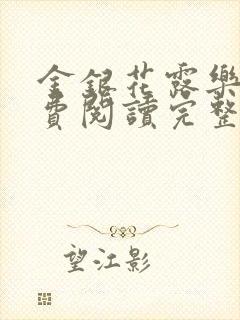 金銀花露樂
費閱讀完整
望江影